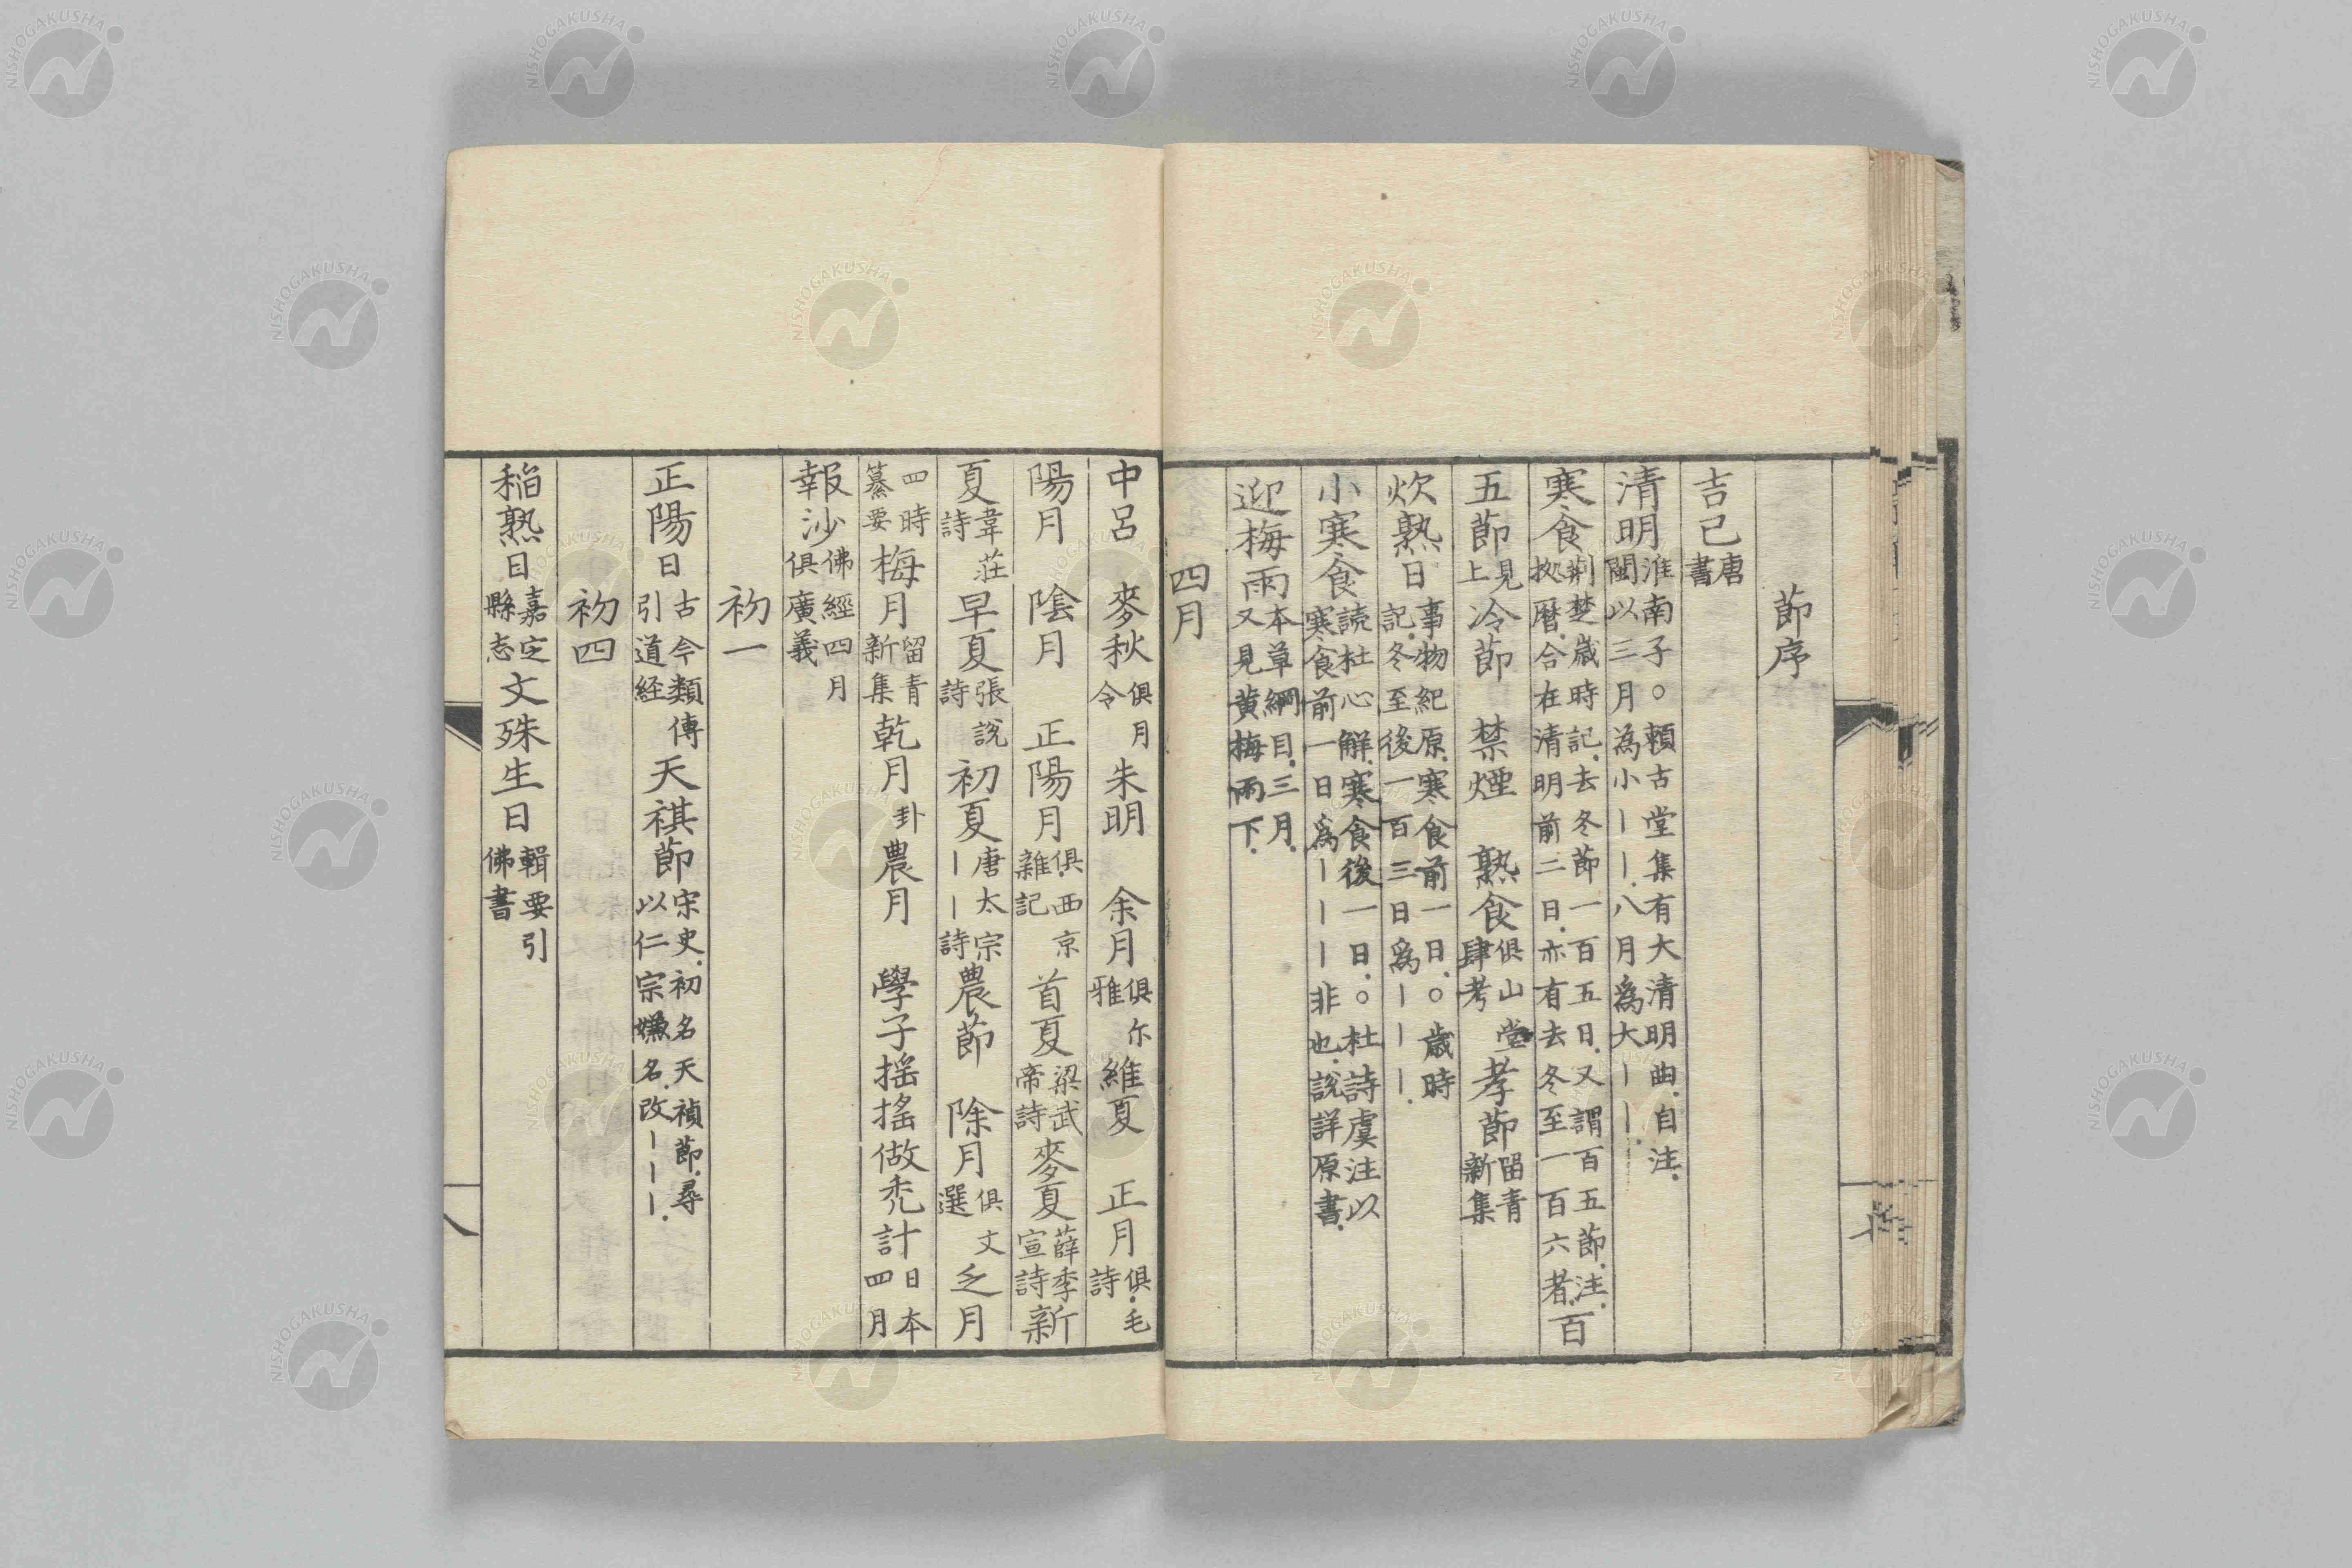 節序
吉己唐書
清明淮南子○賴古堂集有大清明曲.自注.閩以三月為小丨丨.八月爲大丨丨.
寒食荊楚歲時記.去冬節一百五日.又謂百五節.注.按暦.合在清明前二日.亦有去冬至一百六者.百
五節見上冷節 禁煙 熟食俱山堂肆考孝節留青新集
炊熟日事物紀原.寒食前一日.○歳時記.冬至後一百三日爲丨丨丨.
小寒食読杜心解.寒食後一日.○杜詩虞注以寒食前一日爲丨丨丨非也.說詳原書.
迎梅雨本草綱目.三月.又見黄梅雨下.
四月
中呂 麥秋俱月令朱明 余月俱尓雅維夏 正月俱.毛詩
陽月 陰月 正陽月俱.西京雜記首夏梁武帝詩麥夏薛季宣詩新
夏韋莊詩早夏張說詩初夏唐太宗丨丨詩農節 除月俱文選乏月
四時纂要梅月留青新集乾月卦農月 學子揺搖做禿計日本四月
報沙佛經四月俱廣義
初一
正陽日古今類傳引道経天祺節宋史.初名天禎節.尋以仁宗嫌名.改丨丨丨.
初四
稻熟日嘉定縣志文殊生日輯要引佛書
NISHOGAKUSHA